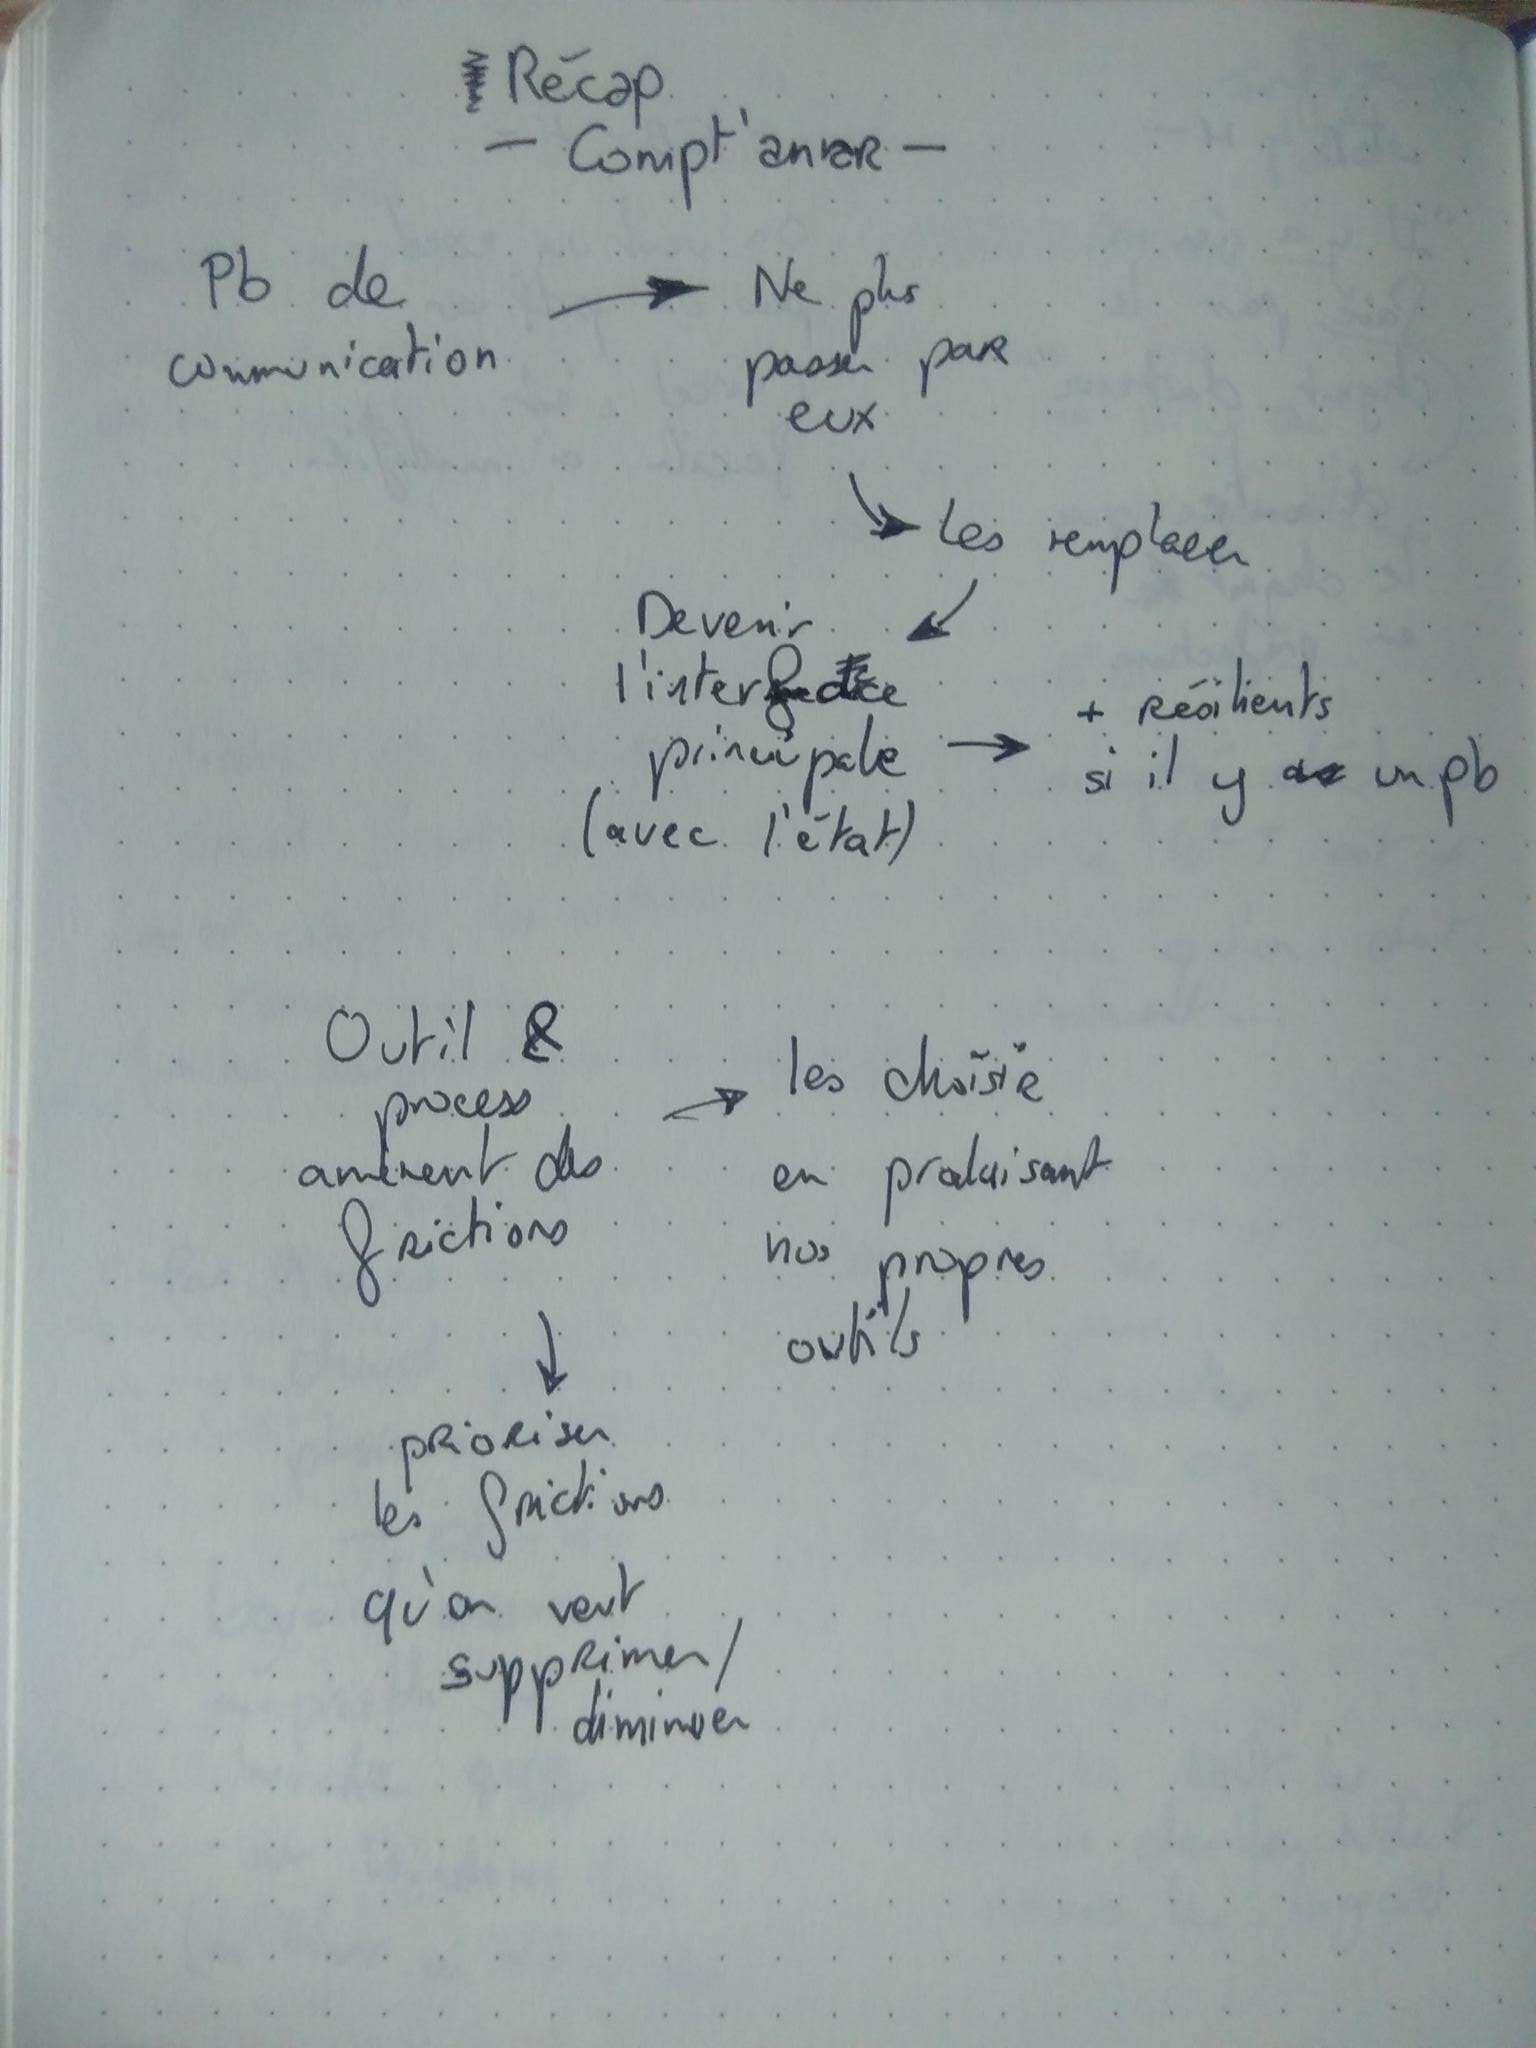 Récap
- Compt'
Pb de
communication
Ne plus
passer par
eux
Les remplacer
Devenir
l'interface
principale
(avec l'état)
+ résilients
si il y a un pb
Outil &
process
amènent des
frictions
les choisir
en produisant
nos propres
outils
prioriser
les frictions
qu'on veut
supprimer/
diminuer